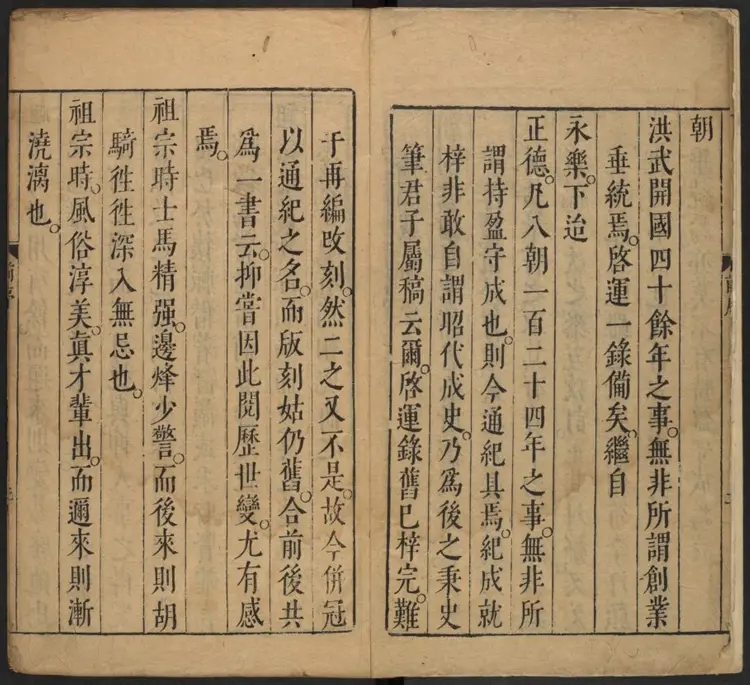 朝
洪武開國四十餘年之事。無非所謂創業
垂統焉。啓運一錄備矣。繼自
永樂。下迨
正德。凡八朝一百二十四年之事。無非所
謂持盈守成也。則今通紀具焉。紀成就
梓非敢自謂昭代成史。乃爲後之秉史
筆君子屬稿云爾。啓運錄舊已梓完。難
于再編改刻。然二之又不是。故今併冠
以通紀之名。而版刻姑仍舊。合前後共
爲一書云。抑嘗因此閱歷世變。尤有感
焉。
祖宗時士馬精强。邊烽少警。而後來則胡
騎徃徃深入無忌也。
祖宗時。風俗淳美。眞才輩出。而邇來則漸
澆漓也。